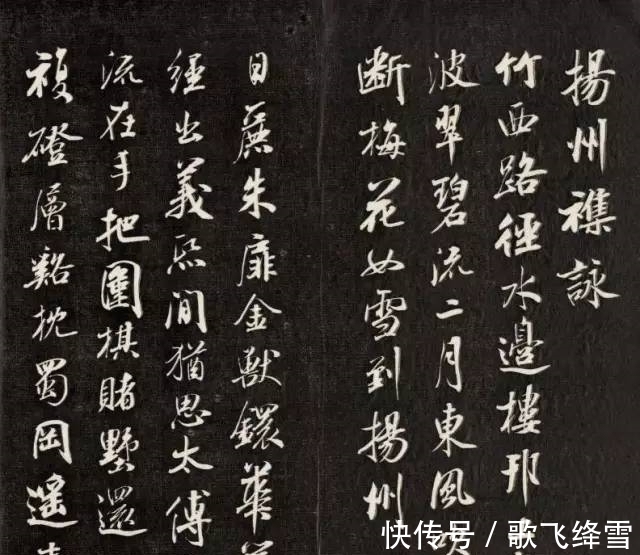 揚州襍詠
竹西路徑水邊樓邗
波翠碧流二月東風
断梅花如雪到揚州
日麗朱扉金獸鐶華
經出義熙間猶思太傅
流在手把圍棋賭墅還
複磴層谿枕蜀岡遥
快传号／歌飞绛雪